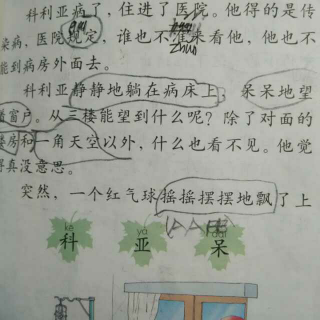 科利亚病了,住进了医院。他得的是传
染病,医院规定,谁也不准来看他,他也不
能到病房外面去。
科利亚静静地躺在病床上,呆呆地望
着窗户。从三楼能望到什么呢?除了对面的
楼房和一角天空以外,什么也看不见。他觉
得真没意思。
突然,一个红气球摇摇摆摆地飘了上
kē yà dāi
科 亚 呆